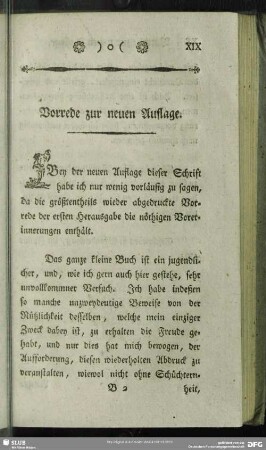 ) o ( XIX
Vorrede zur neuen Auflage.
Bey der neuen Auflage dieser Schrift
habe ich nur wenig vorläufig zu sagen,
da die größtentheils wieder abgedruckte Vor-
rede der ersten Herausgabe die nöthigen Vorer-
innerungen enthält.
Das ganze kleine Buch ist ein jugendli-
cher, und, wie ich gern auch hier gestehe, sehr
unvollkommner Versuch. Ich habe indeßen
so manche unzweydeutige Beweise von der
Nützlichkeit desselben, welche mein einziger
Zweck dabey ist, zu erhalten die Freude ge-
habt, und nur dies hat mich bewogen, der
Aufforderung, diesen wiederholten Abdruck zu
veranstalten, wiewol nicht ohne Schüchtern-
B 2 heit,
SLUB
DFG